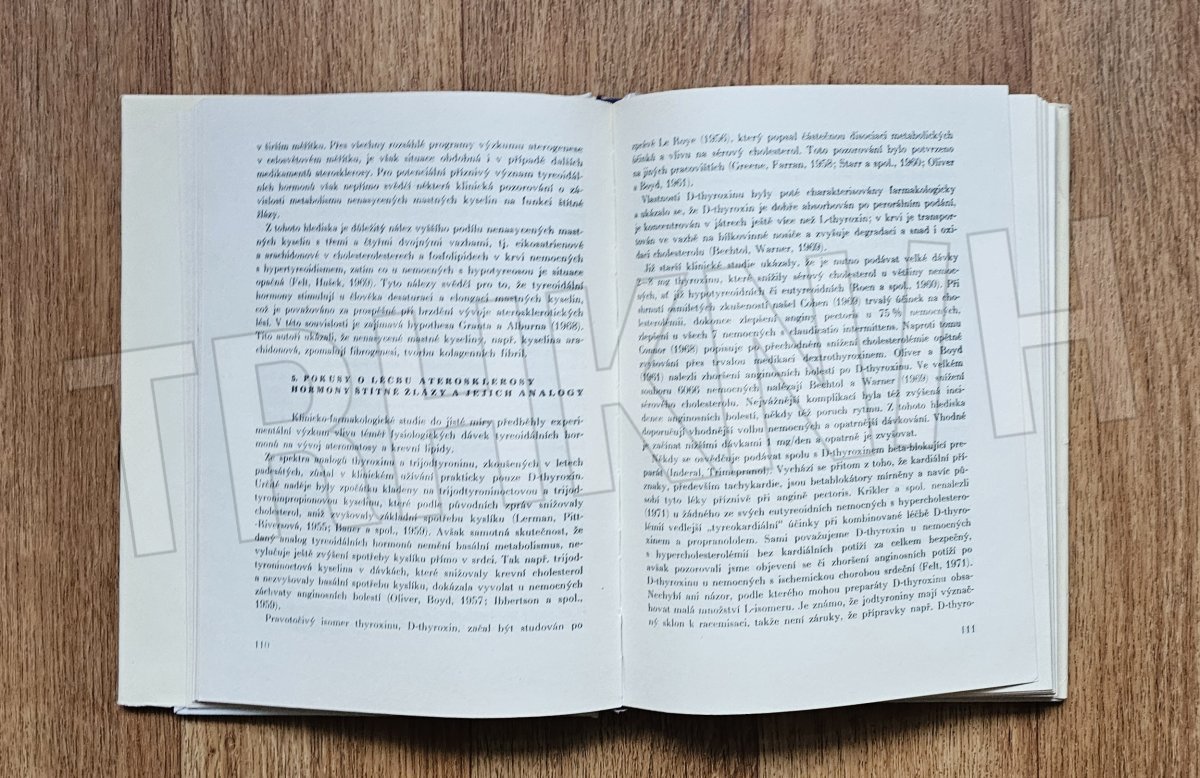 v širším měřítku. Přes všechny rozsáhlé programy výzkumu aterogenese
v celosvětovém měřítku, je však situace obdobná i v případě dalších
medikamentů aterosklerosy. Pro potenciální příznivý význam tyreoidál-
ních hormonů však nepřímo svědčí některá klinická pozorování o zá-
vislosti metabolismu nenasycených mastných kyselin na funkci štítné
žlázy.
Z tohoto hlediska je důležitý nález vyššího podílu nenasycených mast-
ných kyselin s třemi a čtyřmi dvojnými vazbami, tj. eikosatrienové
a arachidonové v cholesterolesterech a fosfolipidech v krvi nemocných
s hypertyreoidismem, zatím co u nemocných s hypotyreosou je situace
opačná (Felt, Hušek, 1969). Tyto nálezy svědčí pro to, že tyreoidální
hormony stimulují u člověka desaturaci a elongaci mastných kyselin,
což je považováno za prospěšné pro brzdění vývoje aterosklerotických
lésí. V této souvislosti je zajímavá hypothesa Granta a Alburna (1968).
Tito autoři ukázali, že nenasycené mastné kyseliny, např. kyselina ara-
chidonová, zpomalují fibrogenesi, tvorbu kolagenních fibril.
5. POKUSY O LÉČBU ATEROSKLEROSY
HORMONY ŠTÍTNÉ ŽLÁZY A JEJICH ANALOGY
Klinicko-farmakologické studie do jisté míry předběhly experi-
mentální výzkum vlivu téměř fysiologických dávek tyreoidálních hor-
monů na vývoj ateromatosy a krevní lipidy.
Ze spektra analogů thyroxinu a trijodtyroninu, zkoušených v letech
padesátých, zůstal v klinickém užívání prakticky pouze D-thyroxin.
Určité naděje byly zpočátku kladeny na trijodtyroninoctovou a trijod-
tyroninpropionovou kyselinu, které podle původních zpráv snižovaly
cholesterol, aniž zvyšovaly základní spotřebu kyslíku (Lerman, Pitt-
-Riversová, 1955; Bauer a spol., 1959). Avšak samotná skutečnost, že
daný analog tyreoidálních hormonů nemění basální metabolismus, ne-
vylučuje ještě zvýšení spotřeby kyslíku přímo v srdci. Tak např. trijod-
tyroninoctová kyselina v dávkách, které snižovaly krevní cholesterol
a nezvyšovaly basální spotřebu kyslíku, dokázala vyvolat u nemocných
záchvaty anginosních bolestí (Oliver, Boyd, 1957; Ibbertson a spol.,
1959).
Pravotočivý isomer thyroxinu, D-thyroxin, začal být studován po
110
zprávě Le Roye (1956), který popsal částečnou disociaci metabolických
účinků a vlivu na sérový cholesterol. Toto pozorování bylo potvrzeno
na jiných pracovištích (Greene, Farran, 1958; Starr a spol., 1960; Oliver
a Boyd, 1961).
Vlastnosti D-thyroxinu byly poté charakterisovány farmakologicky
a ukázalo se, že D-thyroxin je dobře absorbován po perorálním podání,
je koncentrován v játrech ještě více než L-thyroxin; v krvi je transpor-
tován ve vazbě na bílkovinné nosiče a zvyšuje degradaci a snad i oxi-
daci cholesterolu (Bechtol, Warner, 1969).
Již starší klinické studie ukázaly, že je nutno podávat velké dávky
2–8 mg thyroxinu, které snížily sérový cholesterol u většiny nemoc-
ných, ať již hypotyreoidních či eutyreoidních (Boen a spol., 1960). Při
shrnutí osmiletých zkušeností našel Cohen (1969) trvalý účinek na cho-
lesterolémii, dokonce zlepšení anginy pectoris u 75 % nemocných,
zlepšení u všech 7 nemocných s claudicatio intermittens. Naproti tomu
Connor (1968) popisuje po přechodném snížení cholesterolémie opětné
zvyšování přes trvalou medikaci dextrothyroxinem. Oliver a Boyd
(1961) nalezli zhoršení anginosních bolestí po D-thyroxinu. Ve velkém
souboru 6066 nemocných nalézají Bechtol a Warner (1969) snížení
sérového cholesterolu. Nejvážnější komplikací byla též zvýšená inci-
dence anginosních bolestí, někdy též poruch rytmu. Z tohoto hlediska
doporučují vhodnější volbu nemocných a opatrnější dávkování. Vhodné
je začínat nižšími dávkami 1 mg/den a opatrně je zvyšovat.
Někdy se osvědčuje podávat spolu s D-thyroxinem beta-blokující pre-
parát (Inderal, Trimepranol). Vychází se přitom z toho, že kardiální pří-
znaky, především tachykardie, jsou betablokátory mírněny a navíc pů-
sobí tyto léky příznivě při angině pectoris. Krikler a spol. nenalezli
(1971) u žádného ze svých eutyreoidních nemocných s hypercholestero-
lémií vedlejší „tyreokardiální“ účinky při kombinované léčbě D-thyro-
xinem a propranololem. Sami považujeme D-thyroxin u nemocných
s hypercholesterolémií bez kardiálních potíží za celkem bezpečný,
avšak pozorovali jsme objevení se či zhoršení anginosních potíží po
D-thyroxinu u nemocných s ischemickou chorobou srdeční (Felt, 1971).
Nechybí ani názor, podle kterého mohou preparáty D-thyroxinu obsa-
hovat malá množství L-isomeru. Je známo, že jodtyroniny mají význač-
ný sklon k racemisaci, takže není záruky, že přípravky např. D-thyro-
111
TRHKNIH